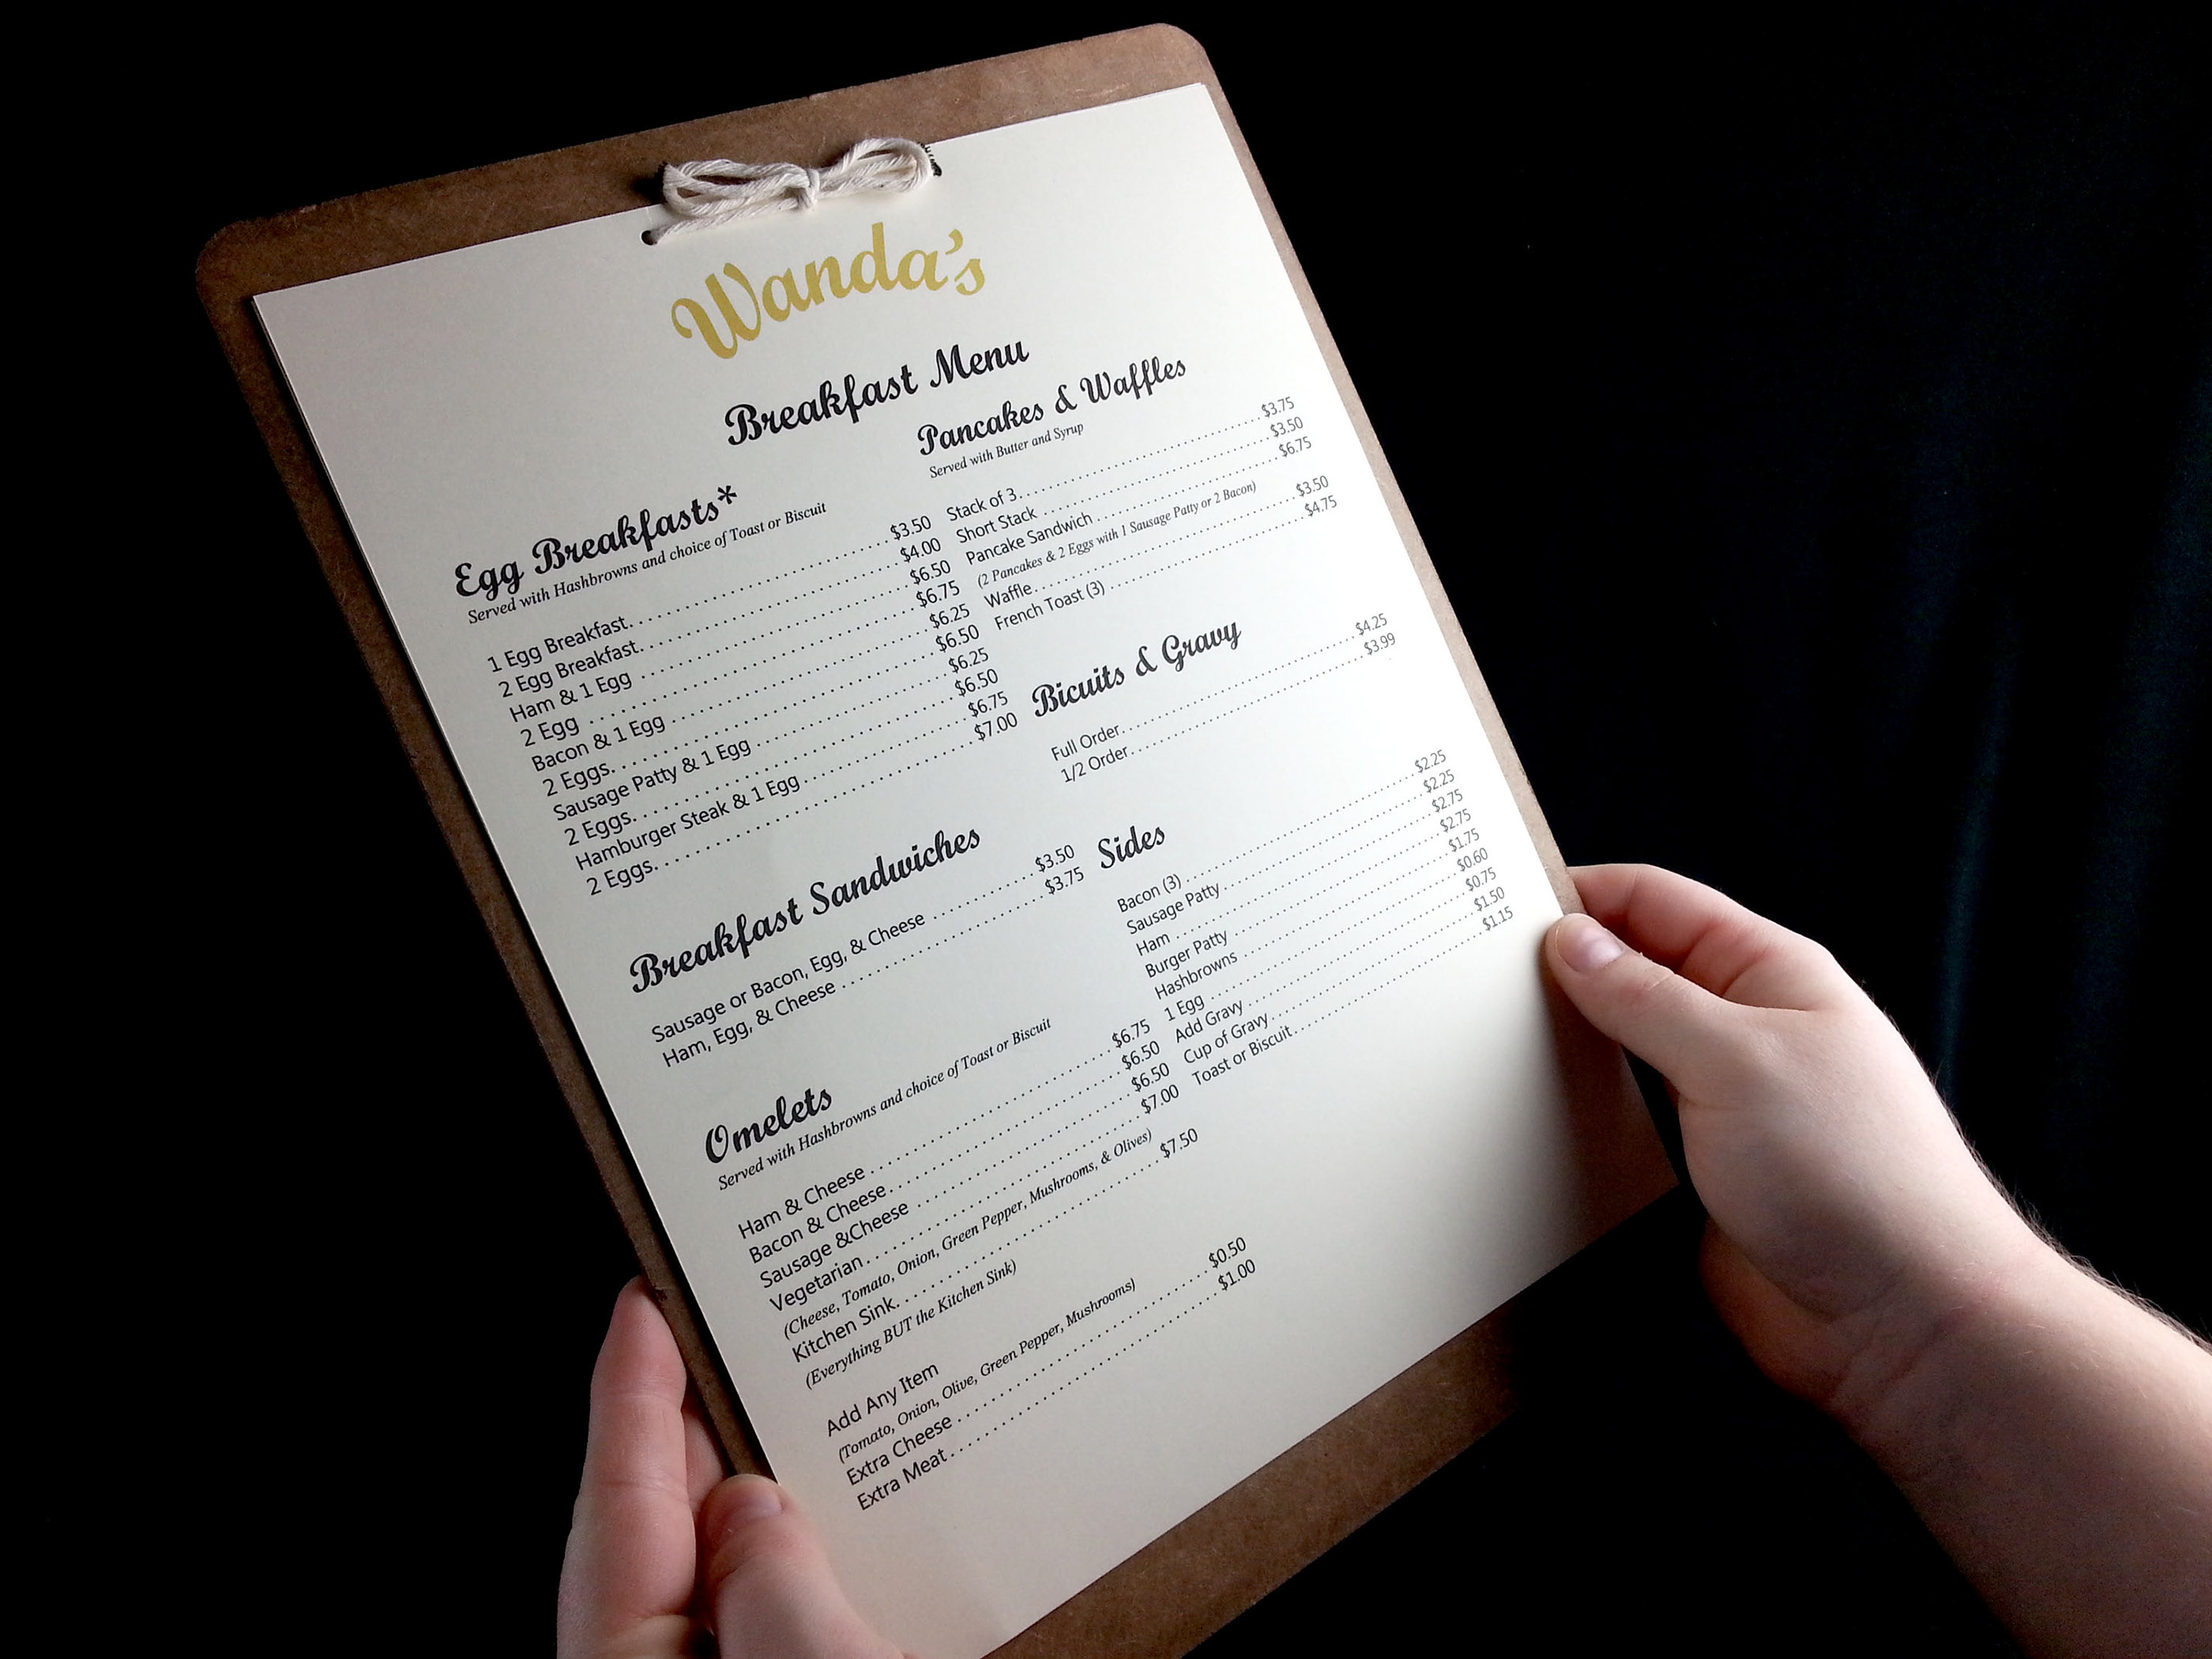 Wanda's
Breakfast Menu
Egg Breakfasts*
Served with Hashbrowns and choice of Toast or Biscuit
1 Egg Breakfast. . . . . . . . . . $3.50
2 Egg Breakfast. . . . . . . . . . $4.00
Ham & 1 Egg . . . . . . . . . . $6.50
2 Egg . . . . . . . . . . $6.75
Bacon & 1 Egg . . . . . . . . . . $6.25
2 Eggs. . . . . . . . . . $6.50
Sausage Patty & 1 Egg . . . . . . . . . . $6.25
2 Eggs. . . . . . . . . . $6.50
Hamburger Steak & 1 Egg . . . . . . . . . . $6.75
2 Eggs. . . . . . . . . . $7.00
Breakfast Sandwiches
Sausage or Bacon, Egg, & Cheese . . . . . . . . . . $3.50
Ham, Egg, & Cheese . . . . . . . . . . $3.75
Omelets
Served with Hashbrowns and choice of Toast or Biscuit
Ham & Cheese . . . . . . . . . . $6.75
Bacon & Cheese. . . . . . . . . . $6.50
Sausage &Cheese . . . . . . . . . . $6.50
Vegetarian. . . . . . . . . . $7.00
(Cheese, Tomato, Onion, Green Pepper, Mushrooms, & Olives)
Kitchen Sink. . . . . . . . . . $7.50
(Everything BUT the Kitchen Sink)
Add Any Item
(Tomato, Onion, Olive, Green Pepper, Mushrooms)
Extra Cheese . . . . . . . . . . $0.50
Extra Meat . . . . . . . . . . $1.00
Pancakes & Waffles
Served with Butter and Syrup
Stack of 3. . . . . . . . . . $3.75
Short Stack . . . . . . . . . . $3.50
Pancake Sandwich . . . . . . . . . . $6.75
(2 Pancakes & 2 Eggs with 1 Sausage Patty or 2 Bacon)
Waffle. . . . . . . . . . $3.50
French Toast (3) . . . . . . . . . . $4.75
Bicuits & Gravy
Full Order. . . . . . . . . . $4.25
1/2 Order. . . . . . . . . . $3.99
Sides
Bacon (3) . . . . . . . . . . $2.25
Sausage Patty . . . . . . . . . . $2.25
Ham . . . . . . . . . . $2.75
Burger Patty . . . . . . . . . . $2.75
Hashbrowns . . . . . . . . . . $1.75
1 Egg . . . . . . . . . . $0.60
Add Gravy . . . . . . . . . . $0.75
Cup of Gravy . . . . . . . . . . $1.50
Toast or Biscuit. . . . . . . . . . $1.15